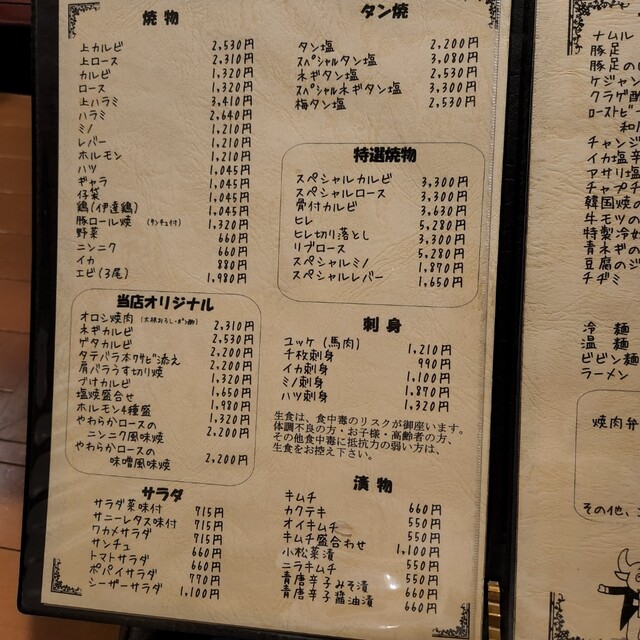 焼物
上カルビ 2,530円
上ロース 2,310円
カルビ 1,320円
ロース 1,320円
上ハラミ 3,410円
ハラミ 2,640円
ミノ 1,210円
レバー 1,210円
ホルモン 1,210円
ハツ 1,045円
ギャラ 1,045円
仔袋 1,045円
鶏(伊達鶏) 1,045円
豚ロール焼 (サンチュ付) 1,320円
野菜 660円
ニンニク 660円
イカ 880円
エビ(3尾) 1,980円
当店オリジナル
オロシ焼肉 (大根おろし・ポン酢) 2,310円
ネギカルビ 2,530円
ゲタカルビ 2,200円
タテバラ本ワサビ添え 2,200円
肩バラうす切り焼 2,200円
ブけカルビ 1,320円
塩焼盛合せ 1,650円
ホルモン4種盛 1,980円
やわらかロースの 1,320円
ニンニク風味焼 2,200円
やわらかロースの
味噌風味焼 2,200円
サラダ
サラダ菜味付 715円
サニーレタス味付 715円
ワカメサラダ 715円
サンチュ 715円
トマトサラダ 660円
ポパイサラダ 770円
シーザーサラダ 1,100円
タン焼
タン塩 2,200円
スペシャルタン塩 3,080円
ネギタン塩 2,530円
スペシャルネギタン塩 3,300円
梅タン塩 2,530円
特選焼物
スペシャルカルビ 3,300円
スペシャルロース 3,300円
骨付カルビ 3,630円
ヒレ 5,280円
ヒレ切り落とし 3,300円
リブロース 5,280円
スペシャルミノ 1,870円
スペシャルレバー 1,650円
刺身
ユッケ(馬肉) 1,210円
千枚刺身 990円
イカ刺身 1,100円
ミノ刺身 1,870円
ハツ刺身 1,320円
生食は、食中毒のリスクが御座います。
体調不良の方・お子様・高齢者の方、
その他食中毒に抵抗力の弱い方は、
生食をお控え下さい。
漬物
キムチ 660円
カクテキ 550円
オイキムチ 550円
キムチ盛合わせ 1,100円
小松菜漬 550円
ニラキムチ 550円
青唐辛子みそ漬 660円
青唐辛子醤油漬 660円
ナムル
豚足
豚足の
ケジャン
クラゲ酢
ローストビー
和
チャンジ
イカ塩辛
アサリ塩
チャプチ
韓国焼の
牛モツの
特製冷
青ネギの
豆腐のジ
チヂミ
冷麺
温麺
ビビン麺
ラーメン
焼肉弁
その他、